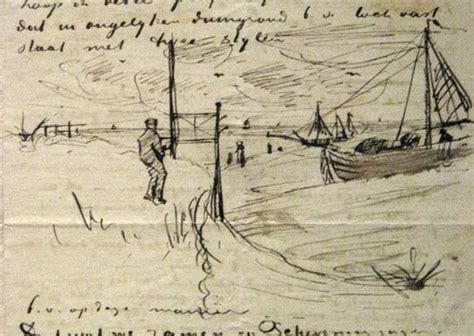 hoop ik beter
dat in ongelyken duingrond b.v. toch vast
staat met twee stylen
b.v. op deze manier
we zamen in Scheveningen